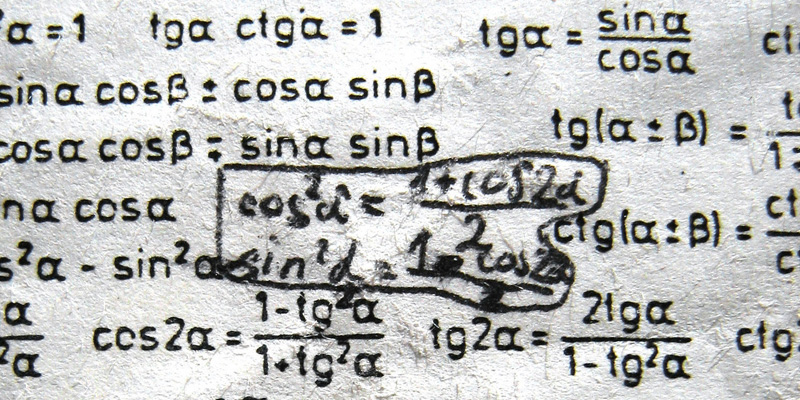 ²α = 1 tgα ctgα = 1 tgα = sinα / cosα
sinα cosβ ± cosα sinβ
cosα cosβ ∓ sinα sinβ tg(α ± β) =
cos²α = 1+cos2α / 2
nα cosα ctg(α ± β) =
s²α - sin²α sin²α = 1-cos2α / 2
cos2α = 1-tg²α / 1+tg²α tg2α = 2tgα / 1-tg²α ctg